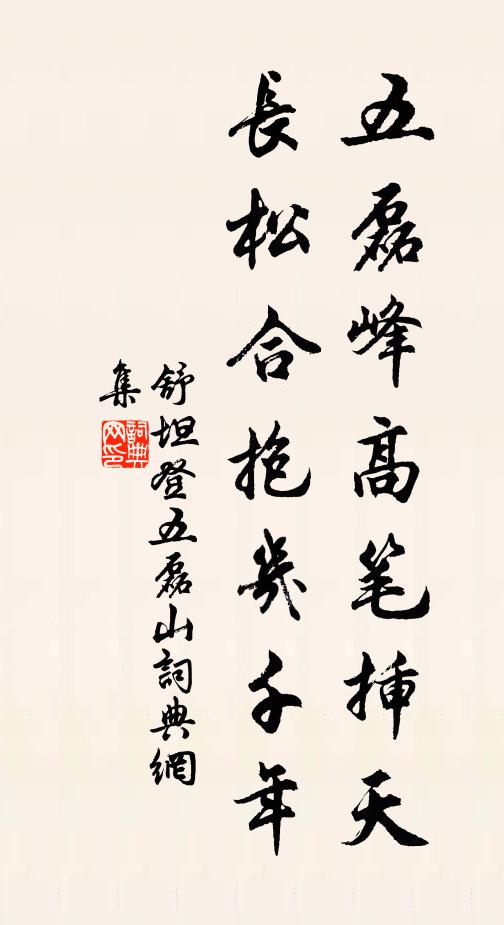 五磊峰高笔插天
長松合抱幾千年
舒坦登五磊山詞典網
集
詞典
网印